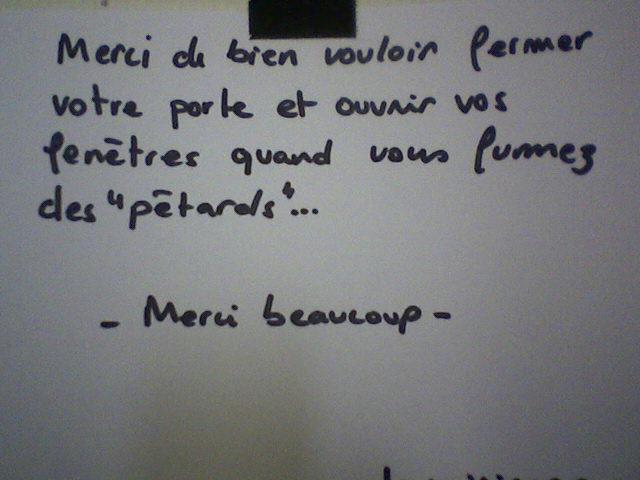 Merci de bien vouloir fermer
votre porte et ouvrir vos
fenêtres quand vous fumez
des "pétards"...
- Merci beaucoup -